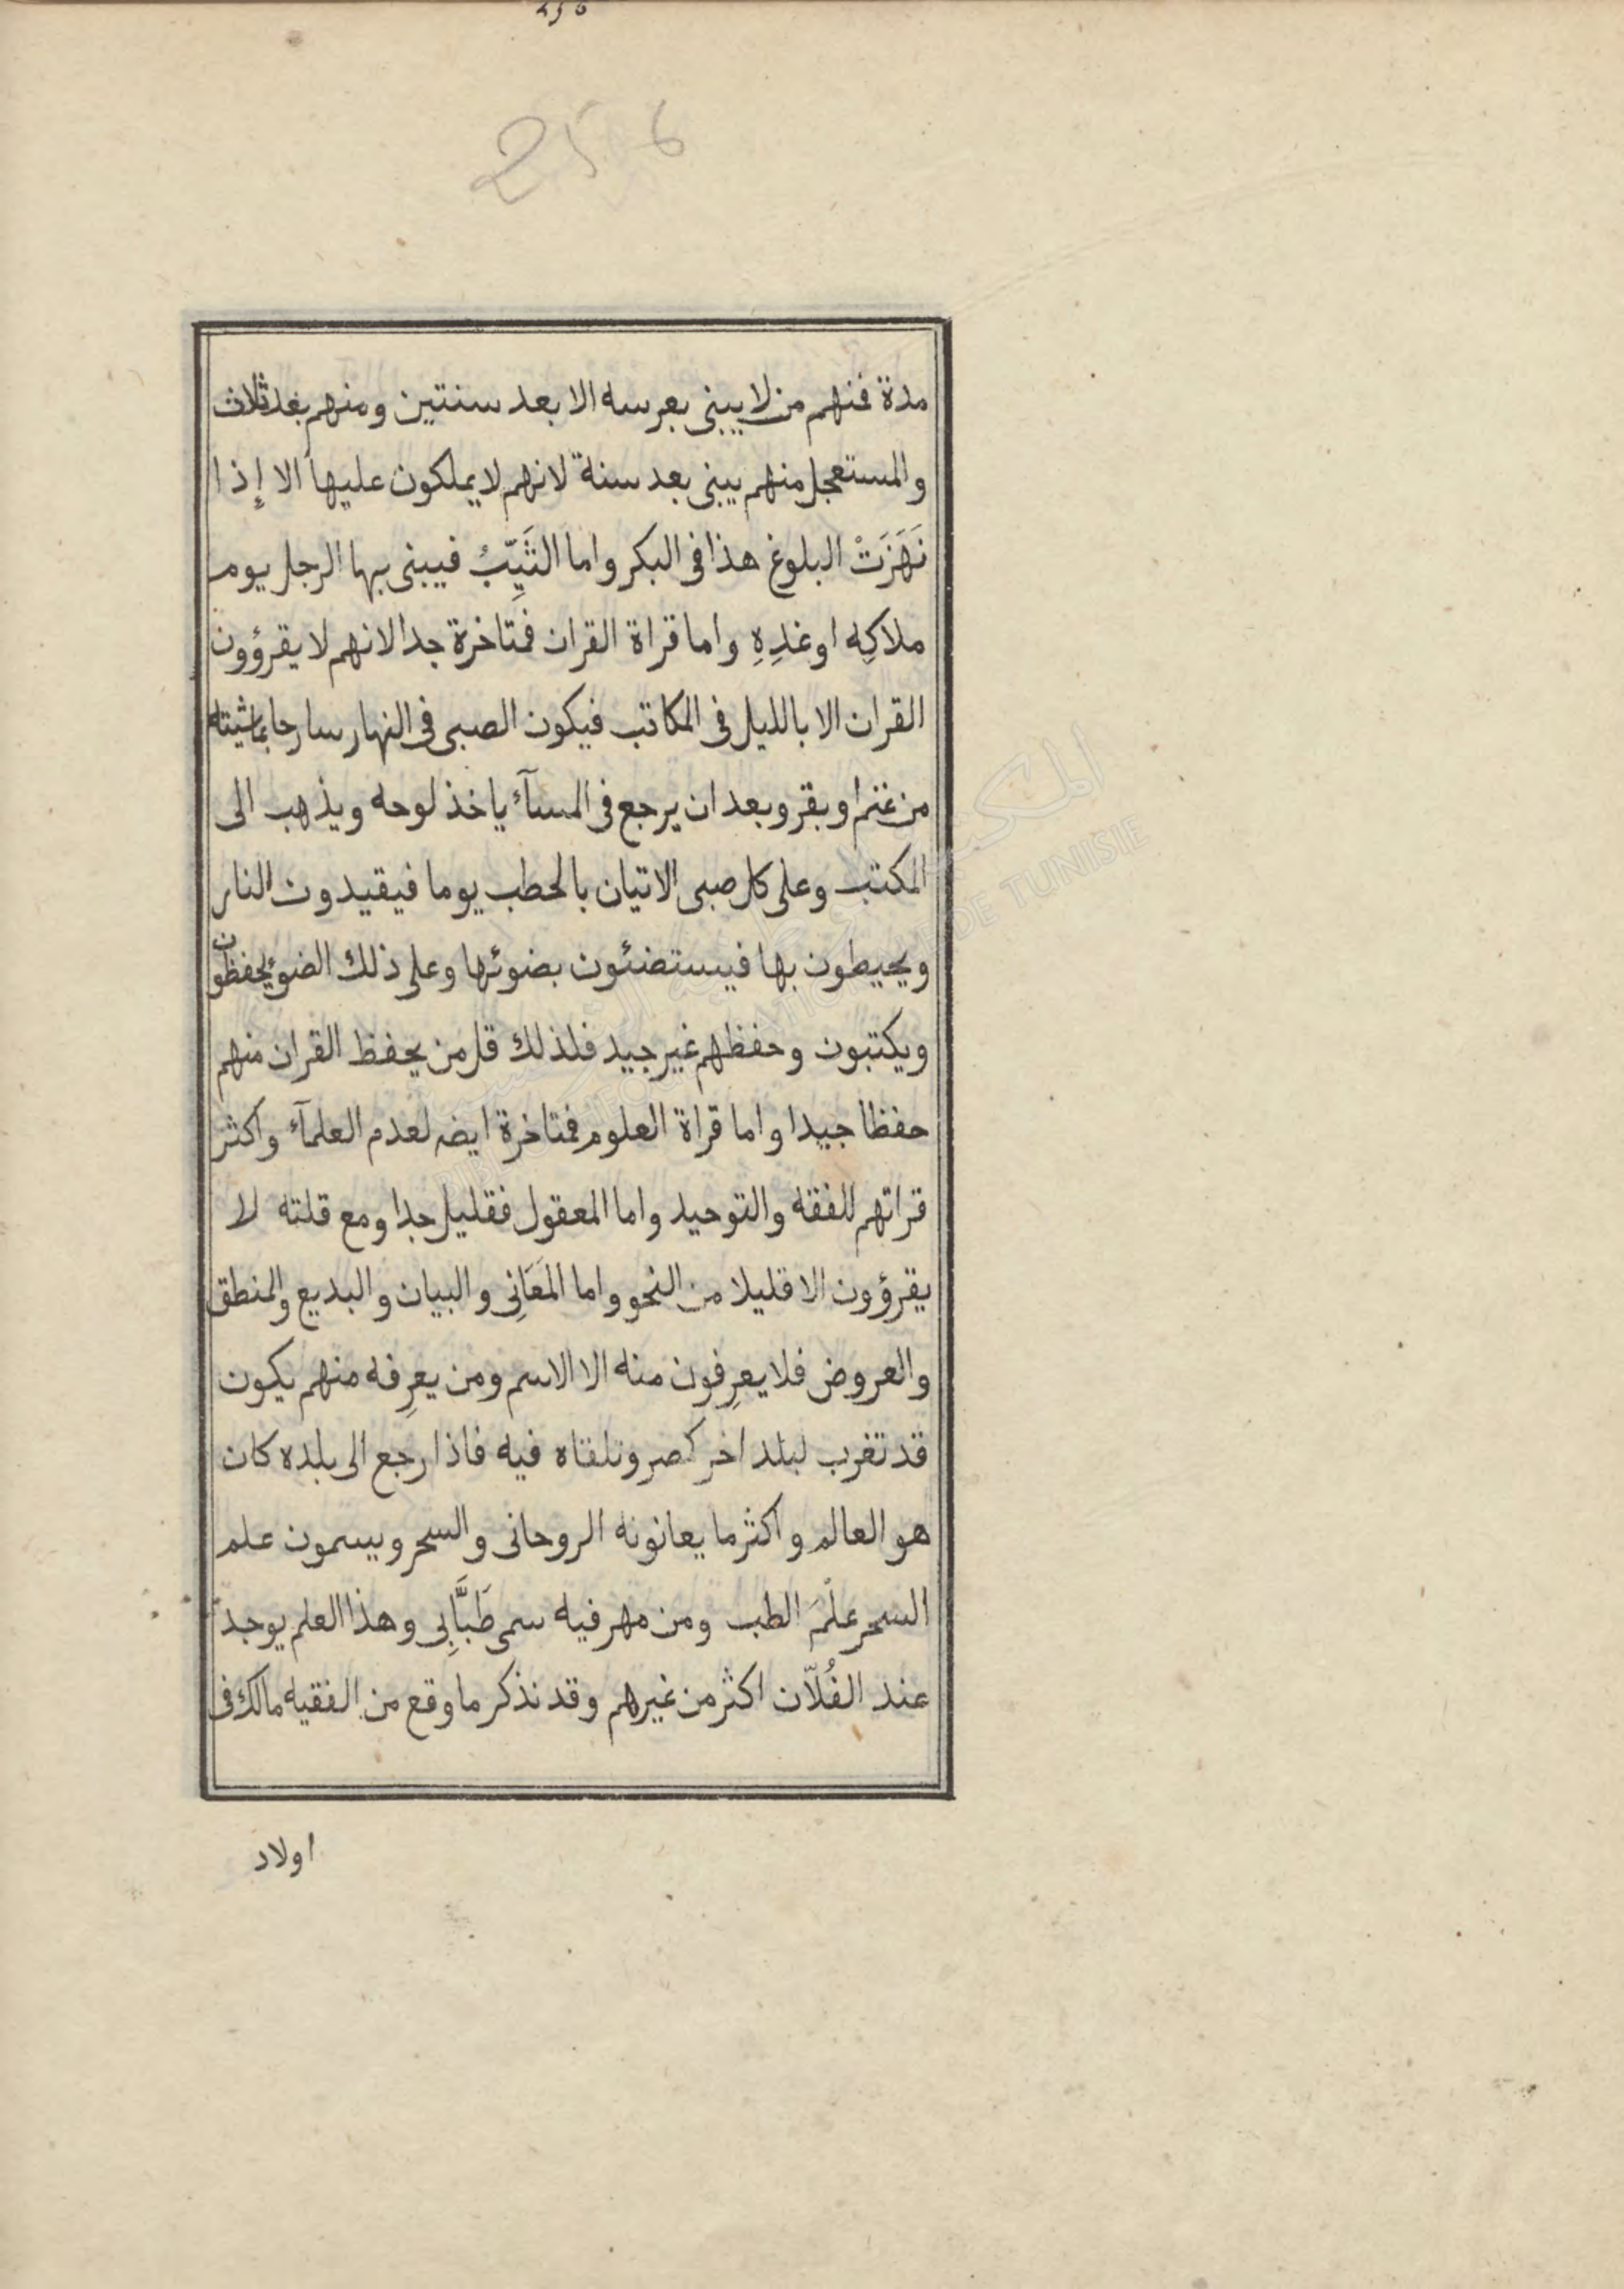 256
256
مدة فمنهم من لا يبنى بعرسه الا بعد سنتين ومنهم بعد ثلاث
والمستعجل منهم يبنى بعد سنة لانهم لا يملكون عليها الا إذا
نَهَزَتْ البلوغ هذا فى البكر واما الثَيِّبُ فيبنى بها الرجل يوم
ملاكِه او غدِهِ واما قراة القران فمتاخرة جدا لانهم لا يقرؤون
القران الا بالليل فى المكاتب فيكون الصبى فى النهار سارحا بماشيته
من غنم او بقر وبعد ان يرجع فى المسآء ياخذ لوحه ويذهب الى
المكتب وعلى كل صبى الاتيان بالحطب يوما فيقيدون النار
ويحيطون بها فيستضئون بضوئها وعلى ذلك الضوء يحفظون
ويكتبون وحفظهم غير جيد فلذلك قل من يحفظ القران منهم
حفظا جيدا واما قراة العلوم فمتاخرة ايضه لعدم العلمآء واكثر
قراتهم للفقه والتوحيد واما المعقول فقليل جدا ومع قلته لا
يقرؤون الا قليلا من النحو واما المَعَانِى والبيان والبديع والمنطق
والعروض فلا يعرِفون منه الا الاسم ومن يعرِفه منهم يكون
قد تغرب لبلد اخر كمصر وتلقاه فيه فاذا رجع الى بلده كان
هو العالم واكثر ما يعانونه الروحانى والسحر ويسمون علم
السحر علْمَ الطب ومن مهر فيه سمى طَبَّابِى وهذا العلم يوجد
عند الفُلاّن اكثر من غيرهم وقد نذكر ما وقع من الفقيه مالك فى
اولاد
المكتبة الوطنية التونسية
BIBLIOTHEQUE NATIONALE DE TUNISIE